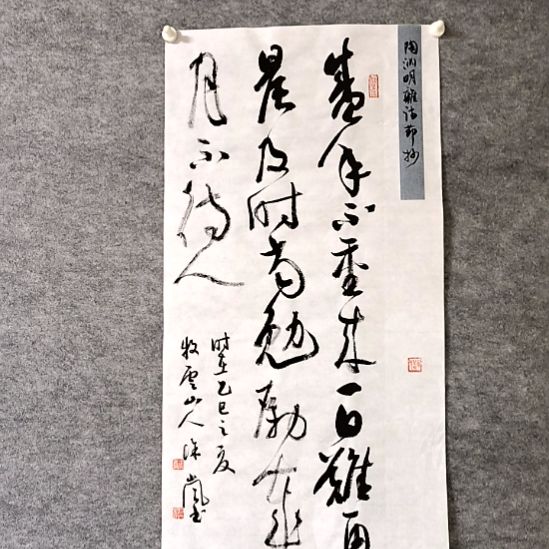 陶渊明雜诗节抄
盛年不重来一日難再
晨及时当勉励岁
月不待人
时在乙巳之夏
牧雲山人